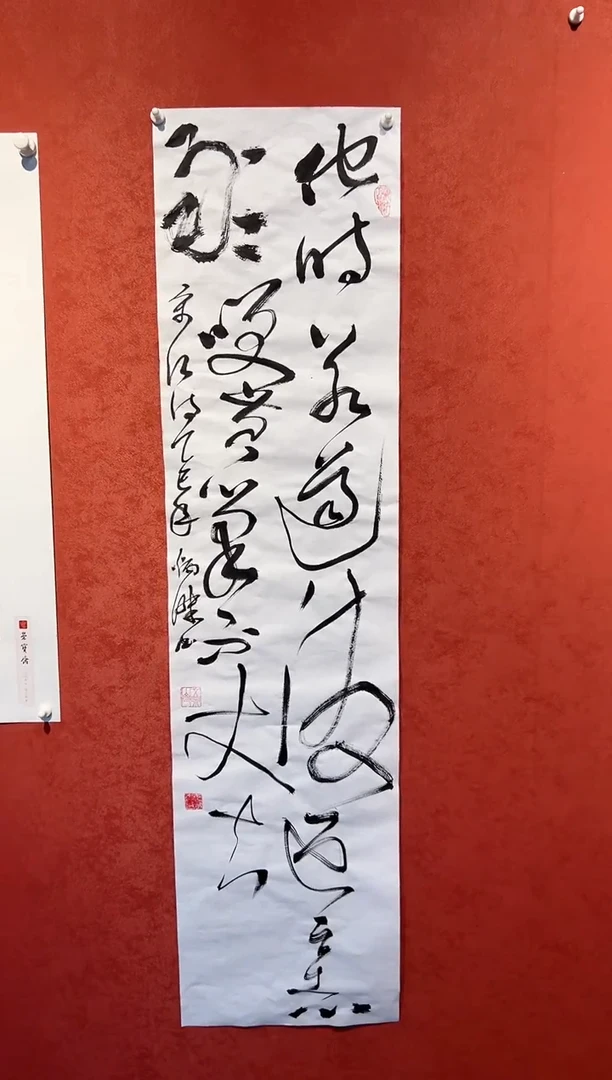 他時若遂凌云志
敢笑黄巢不丈夫
宋江诗乙巳年